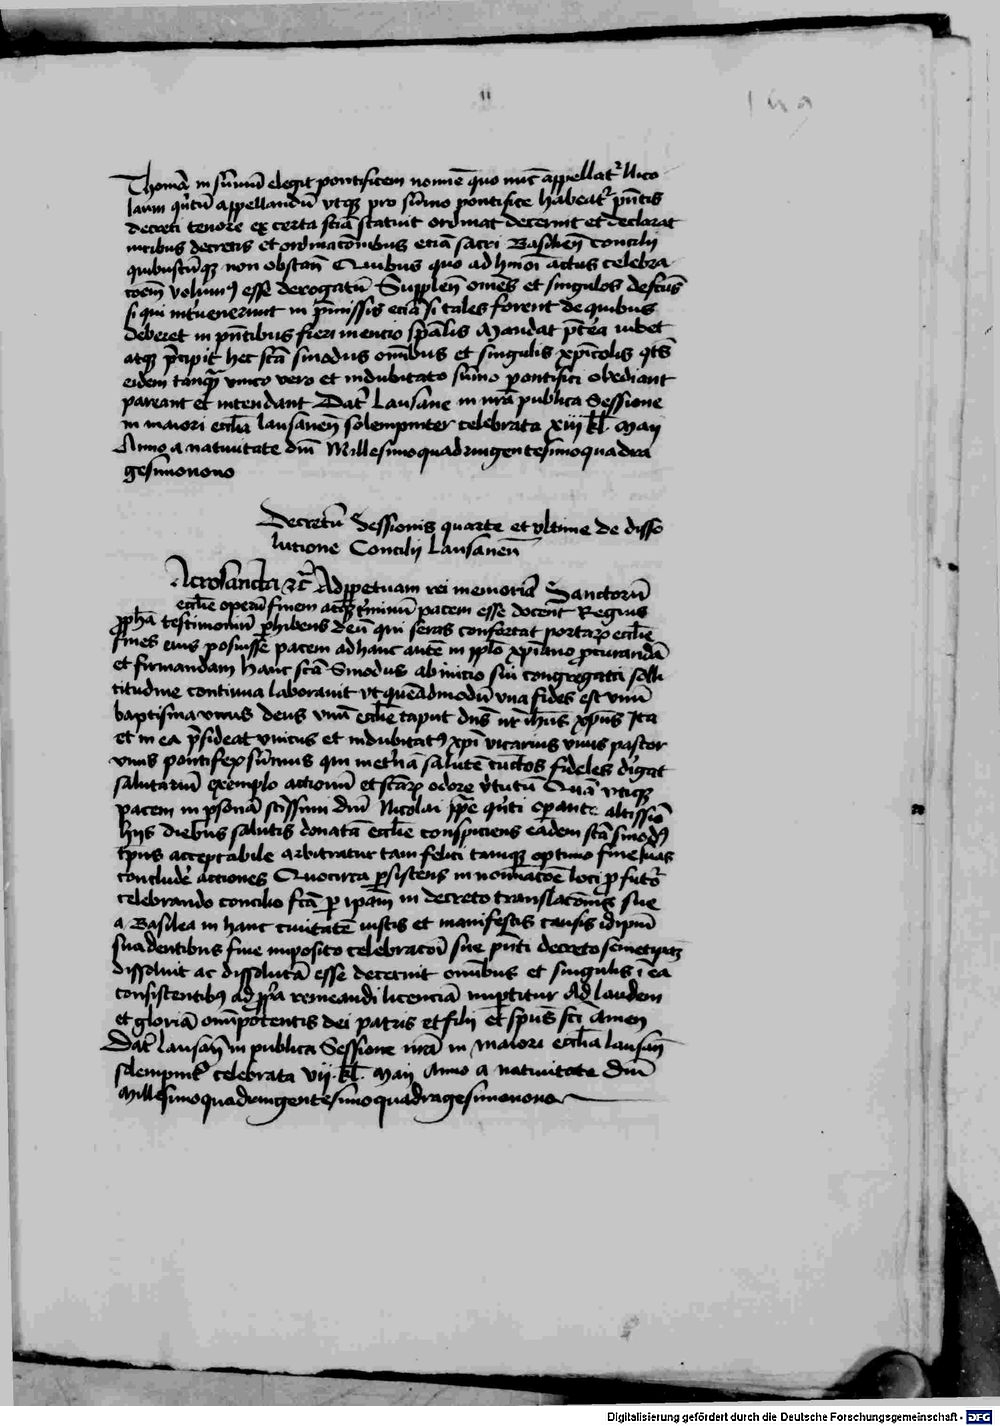 11
149
Thomã in sũmũ elegit pontificem nomĩe quo nũc appellatʳ Nico
laum qͥntũ appellandũ vtqꝫ pro sũmo pontifice habeatʳ pñtis
decreti tenore ex certa sciã statuit ordinat decernit et declarat
iuribus decretis et ordinacõnibus etiã sacri Basilieñ Concilij
quibuscũqꝫ non obstañ Quibus quo ad hmõi actus celebra
cõem volumꝰ esse derogatũ Suppleñ om̃es et singulos defcũs
si qui interuenerunt in p̃missis etiã si tales forent de quibus
deberet in pñtibus fieri mencio spãlis Mandat pͭea iubet
atqꝫ p̃cipit hec scã sinodus om̃ibus et singulis xp̃icolis qͣtͥs
eidem tanqͣ vnico vero et indubitato sũmo pontifici obediant
pareant et intendant Datʳ Lausane in nrã publica Sessione
in maiori eccliã lausaneñ solempniter celebrata xiij kl̃ Maij
Anno a natiuitate dñi Millesimoquadringentesimoquadra
gesimonono
Decretũ Sessionis quarte et vltime de disso
lutione Concilij Lausaneñ
Acrosancta ⁊c̃ Ad ꝑpetuam rei memoriã Sanctorũ
ecclie operũ finem atqꝫ tͥminũ pacem esse docent Regius
ꝓphã testimoniũ ꝑhibens deũ qui seras confortat portaꝝ ecclie
fines eius posuisse pacem ad hanc autẽ in pplo xp̃iano ꝓcurandã
et firmandam hanc scã Sinodus ab inicio sui congregata solli
titudine continua laborauit vt quẽadmodũ vna fides est vnũ
baptisma vnus deus vnũ ecclie caput dñs nͬ ihũs xp̃us Ita
et in ea p̃sideat vnicus et indubitatꝰ xp̃i vicarius vnus pastor
vnus pontifex sũmus qui in eternã salutẽ cũctos fideles dͥigat
salutariũ exemplo actionũ et scãꝝ odore vͬtutũ Quã vtiqꝫ
pacem in ꝑsonã scissimi dñi Nicolai pp̃e qͥnti oꝑante altissĩo
hijs diebus salutis donatã ecclie conspiciens eadem scã sinodꝰ
tp̃us acceptabile arbitratur tam felici tamqꝫ optimo fine suas
concludeͬ acciones Quocirca ꝑsistens in nomĩacõe loci ꝓ futͬo
celebrando concilio fcã ꝑ ip̃am in decreto translacõnis sue
a Basilea in hanc ciuitatẽ iustis et manifestis causis idip̃m
suadentibus fine imposito celebracõi sue pñti decreto semetip̃aꝫ
dissoluit ac dissolutã esse decernit om̃ibus et singulis ĩ ea
consistentibꝰ ad ꝓp̃a remeandi licenciã imꝑtitur Ad laudem
et gloriã om̃ipotentis dei patris et filij et sp̃us scĩ Amen
Datʳ Lausañ in publica Sessione nrã in Maiori eccliã lausañ
solempnitͬ celebrata vij kl̃ Maij Anno a natiuitate dñi
Millesimoquadringentesimoquadragesimonono
Digitalisierung gefördert durch die Deutsche Forschungsgemeinschaft - DFG